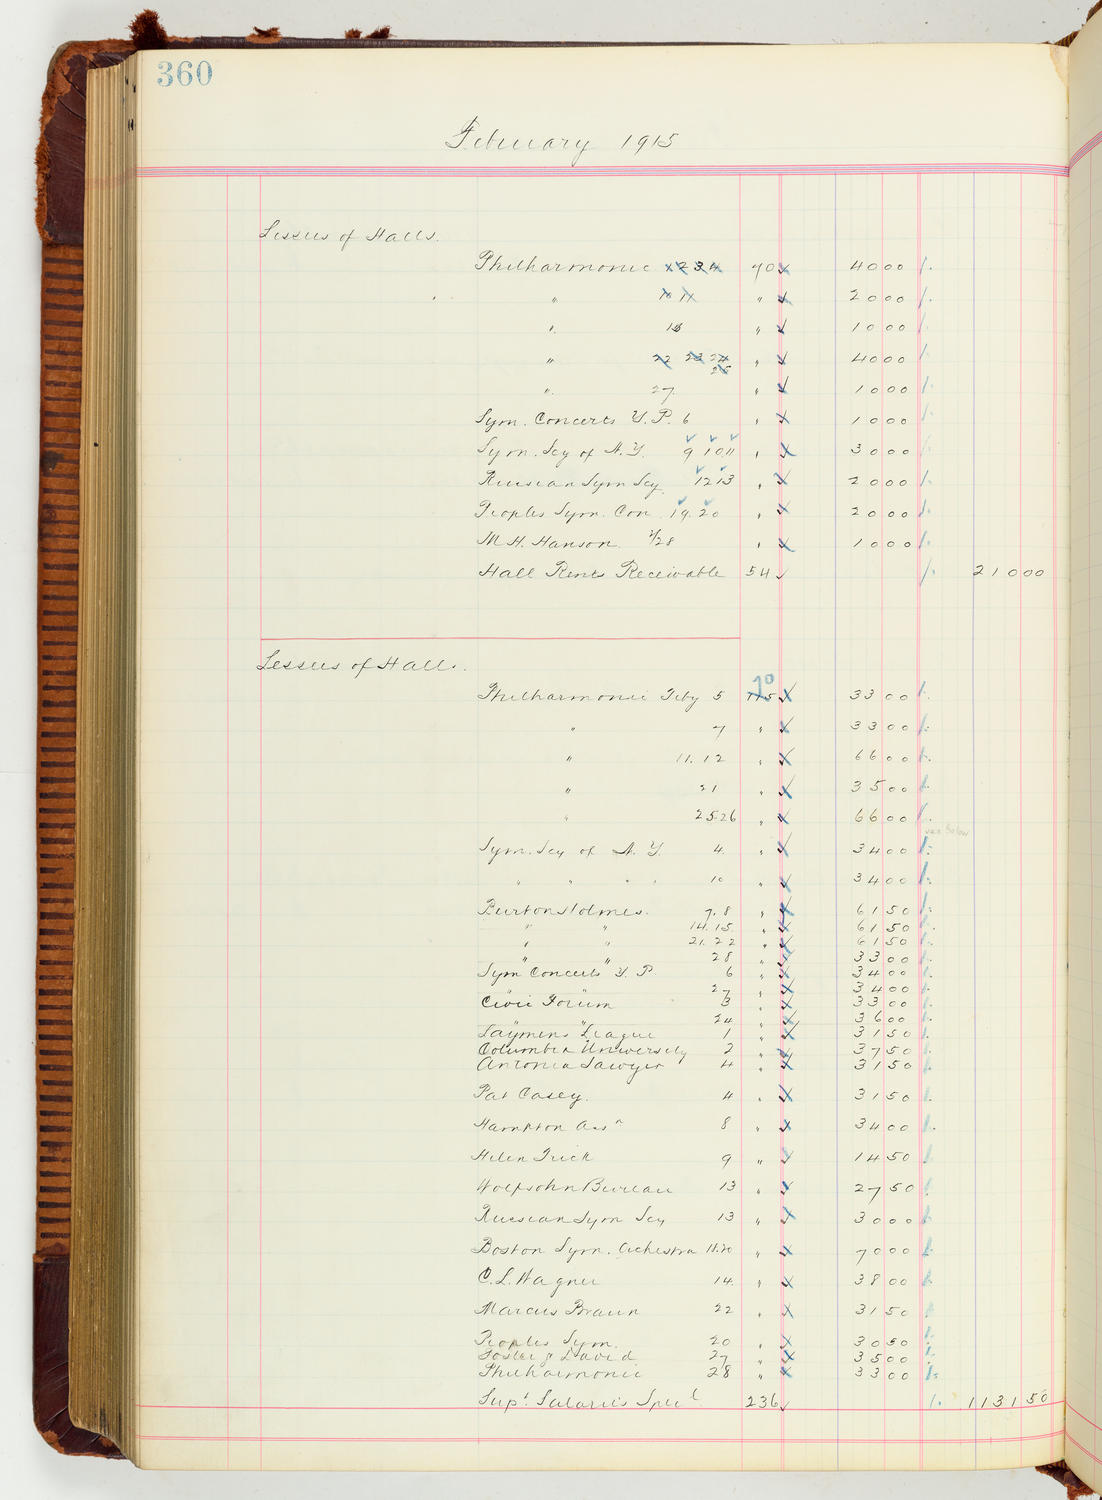 360
February 1915
Lessees of Halls.
Philharmonic 1 2 3 4 70 4000
" 10 11 " 2000
" " 1000
" 22 23 24 " 4000
25
" 27. " 1000
Sym. Concerts Y. P. 6 " 1000
Sym. Scy of N. Y. 9 10 11 " 3000
Russian Sym Scy. 12 13 " 2000
Peoples Sym. Con 19. 20 " 2000
M. H. Hanson. 2/28 " 1000
Hall Rents Receivable 54 21000
Lessees of Halls.
70
Philharmonic Feby 5 115 3300
" 7 " 3300
" 11. 12 " 6600
" 21 " 3500
" 25 26 " 6600
see below
Sym. Scy of N. Y. 4. " 3400
" " " " 10 " 3400
Burton Holmes. 7. 8 " 6150
" " 14. 15. " 6150
" " 21. 22 " 6150
" " 28 " 3300
Sym Concerts Y. P 6 " 3400
" " 27 " 3400
Civic Forum 3 " 3300
" " 24 " 3600
Laymens League 1 " 3150
Columbia University 2 " 3750
Antonia Sawyer 4 " 3150
Pat Casey. 4 " 3150
Hampton Assn 8 " 3400
Helen Frick 9 " 1450
Wolfsohn Bureau 13 " 2750
Russian Sym Scy 13 " 3000
Boston Sym. Orchestra 18.20 " 7000
C. L. Wagner 14. " 3800
Marcus Braun 22 " 3150
Peoples Sym. 20 " 3050
Foster & David 27 " 3500
Philharmonic 28 " 3300
Supt. Salaries Specl 236 113150